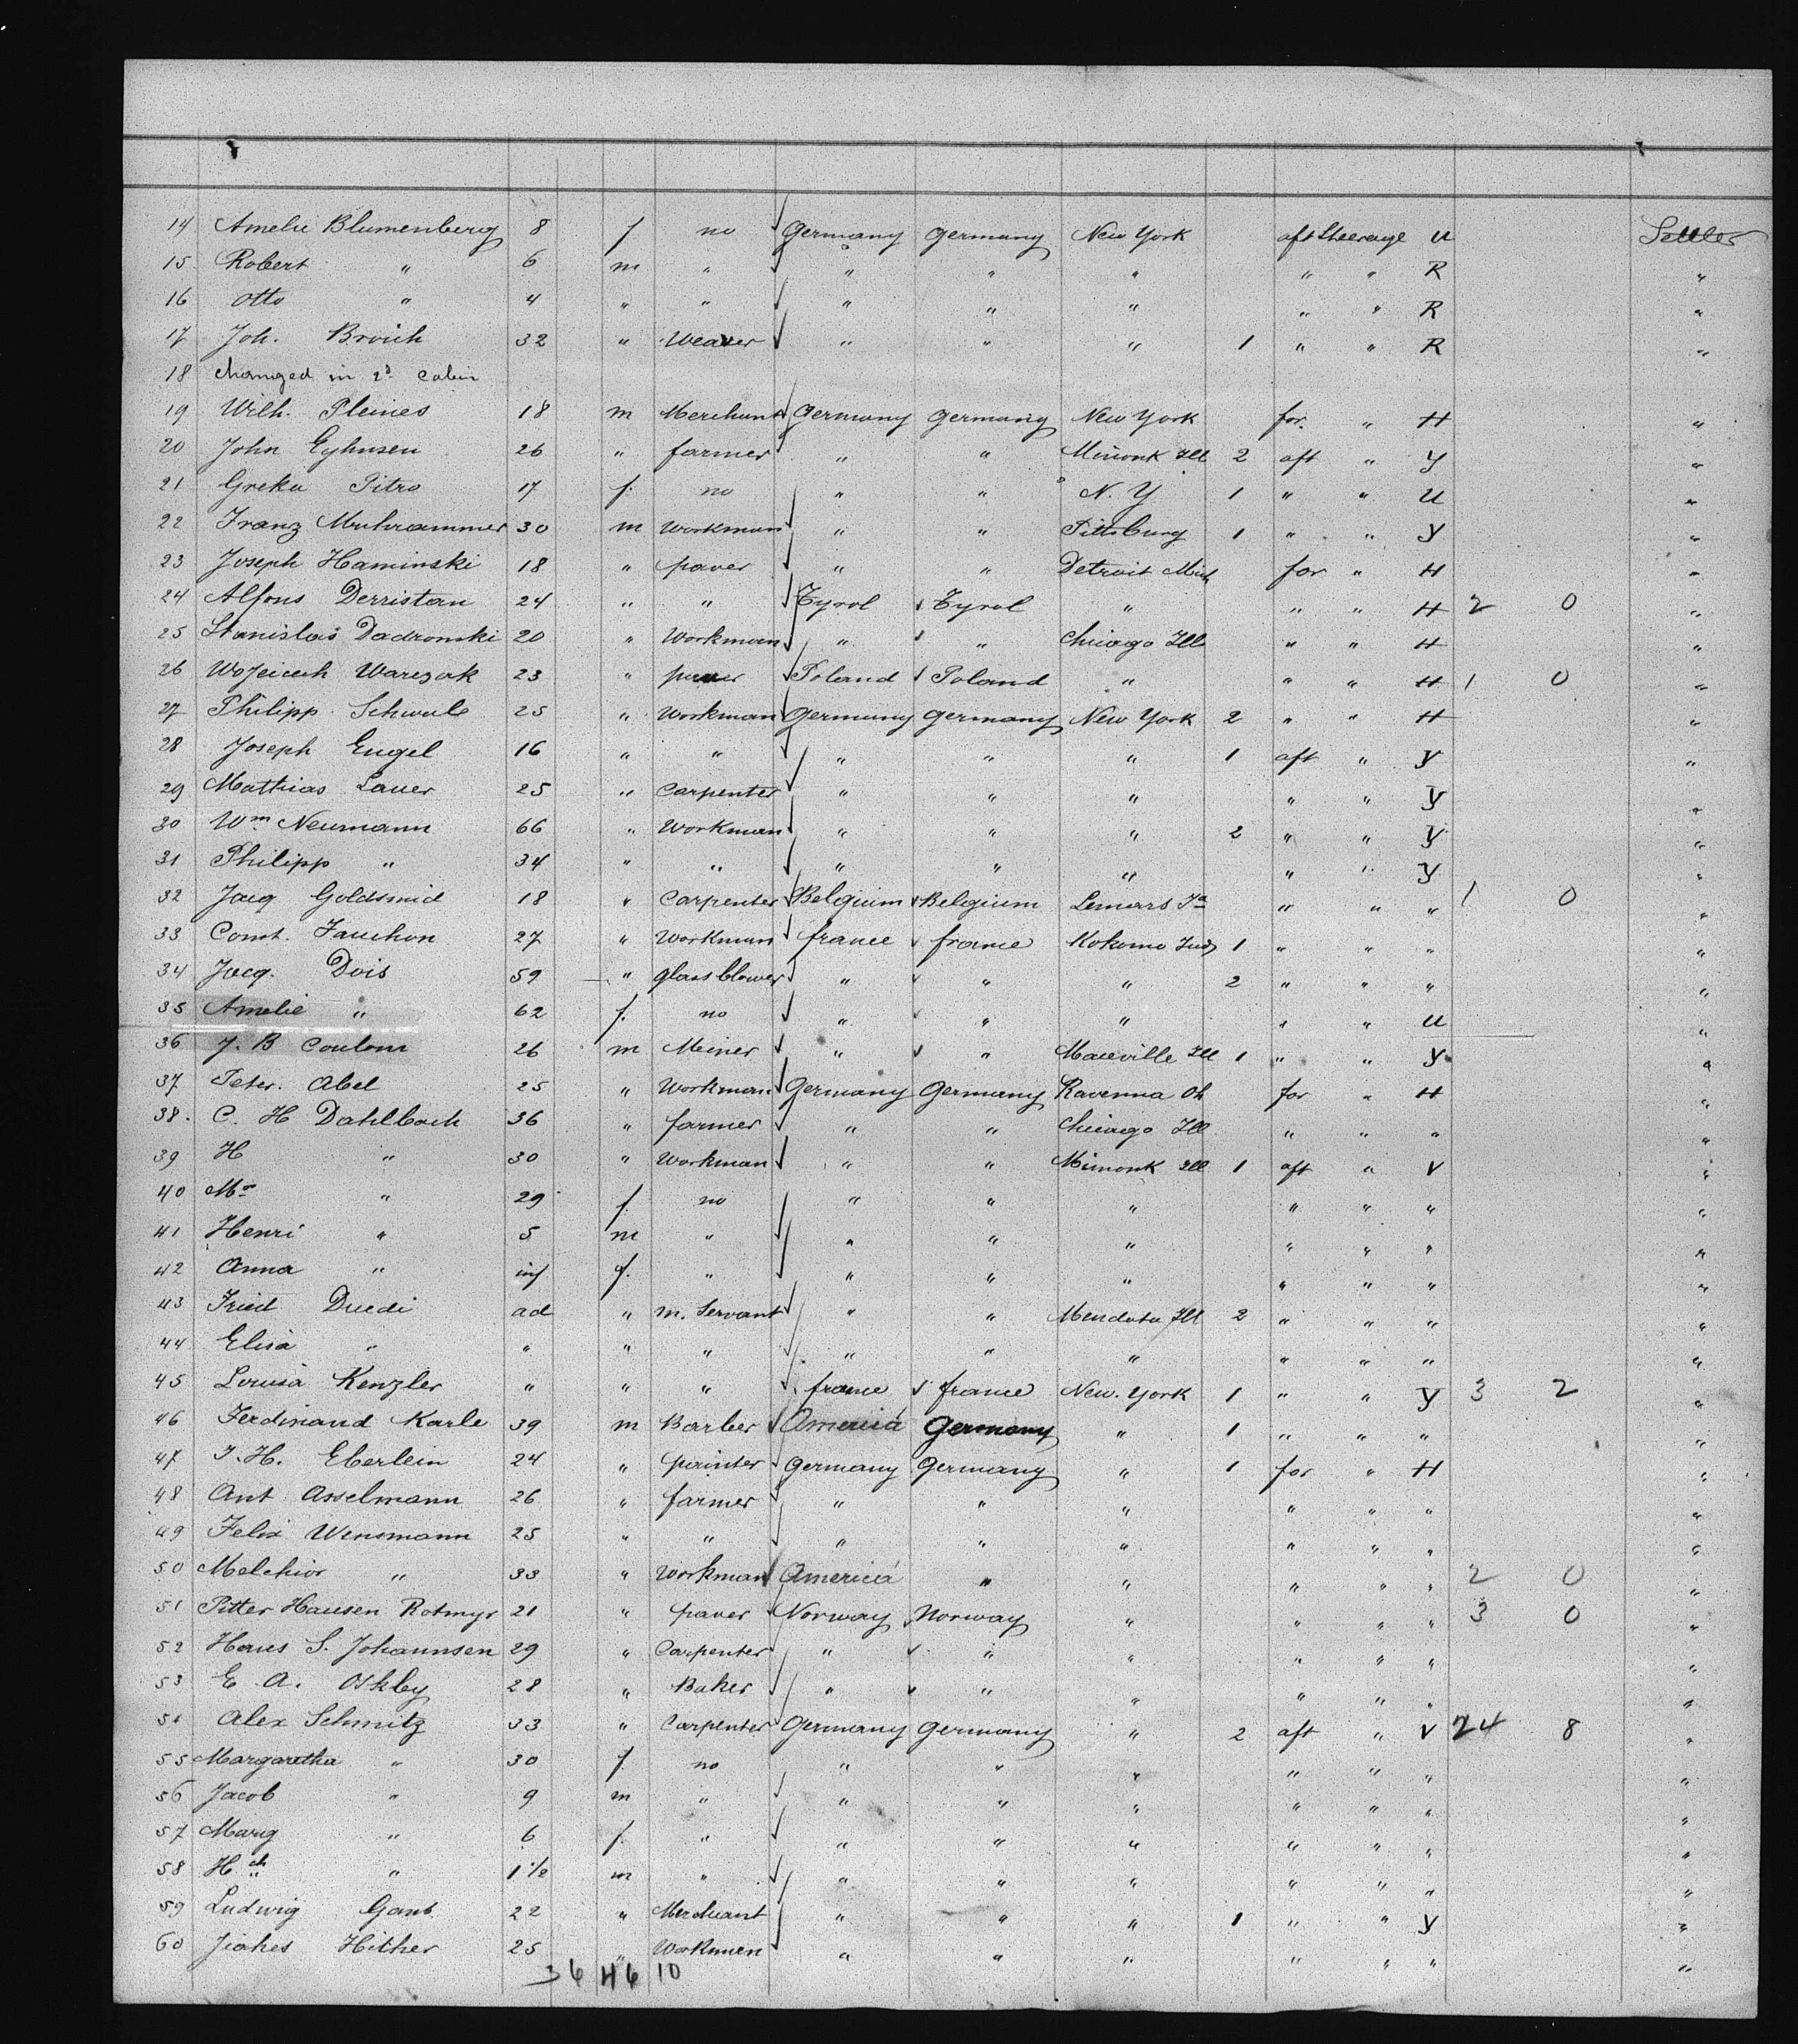 14 Amelie Blumenberg 8 f no Germany Germany New York aft Steerage U Settler
15 Robert " 6 m " " " " " " R "
16 Otto " 4 " " " " " " " R "
17 Joh. Broich 32 " Weaver " " " 1 " " R "
18 changed in 2d Cabin
19 Wilh. Pleines 18 m Merchant Germany Germany New York for. " H "
20 John Eyhusen 26 " farmer " " Minonk Ill 2 aft " Y "
21 Greka Pitro 17 f. no " " N. Y 1 " " U "
22 Franz Muhrammer 30 m workman " " Pittsburg 1 " " Y "
23 Joseph Haminski 18 " paver " " Detroit Mich for " H "
24 Alfons Derristan 24 " " Tyrol Tyrol " " " H 2 0 "
25 Stanislas Dadromski 20 " Workman " " Chicago Ills " " H "
26 Wojeicech Warezak 23 " paver Poland Poland " " " H 1 0 "
27 Philipp Schwab 25 " Workman Germany Germany New York 2 " " H "
28 Joseph Engel 16 " " " " " 1 aft " Y "
29 Mathias Lauer 25 " Carpenter " " " " " Y "
30 Wm Neumann 66 " Workman " " " 2 " " Y "
31 Philipp " 34 " " " " " " " Y "
32 Jacq Goldsmid 18 " Carpenter Belgium Belgium Lemars Ia " " " 1 0 "
33 Const. Fauchon 27 " Workman france france Kokomo Ind 1 " " " "
34 Jacq. Dois 59 " glass blower " " " 2 " " " "
35 Amelie " 62 f. no " " " " " U "
36 J. B Coulom 26 m Meiner " " Maceville Ill 1 " " Y "
37 Peter. Abel 25 " Workman Germany Germany Ravenna Oh for " H "
38. C. H Dahlbach 36 " farmer " " Chicago Ill " " " "
39 H " 30 " Workman " " Minonk Ill 1 aft " V "
40 Mrs " 29 f. no " " " " " " "
41 Henri " 5 m " " " " " " " "
42 Anna " inf f. " " " " " " " "
43 Fried Druedi ad " m. Servant " " Mendota Ill 2 " " " "
44 Elisa " " " " " " " " " " "
45 Louisa Kenzler " " " france france New. York 1 " " Y 3 2 "
46 Ferdinand Karle 39 m Barber America Germany " 1 " " " "
47 J. H. Eberlein 24 " painter Germany Germany " 1 for " H "
48 Ant Asselmann 26 " farmer " " " " " " "
49 Felix Wensmann 25 " " " " " " " " "
50 Melchior " 33 " Workman America " " " " " 2 0 "
51 Pitter Hausen Rotmyr 21 " paver Norway Norway " " " " 3 0 "
52 Hans S. Johannsen 29 " Carpenter " " " " " " "
53 E. A. Oskley 28 " Baker " " " " " " "
54 Alex Schmitz 33 " Carpenter Germany Germany " 2 aft " V 24 8 "
55 Margaretha " 30 f. no " " " " " " "
56 Jacob " 9 m " " " " " " " "
57 Marg " 6 f. " " " " " " " "
58 Hch " 1 1/2 m " " " " " " " "
59 Ludwig Gans 22 " Merchant " " " 1 " " Y "
60 Jiakes Hither 25 " Workmen " " " " " " "
36 46 10